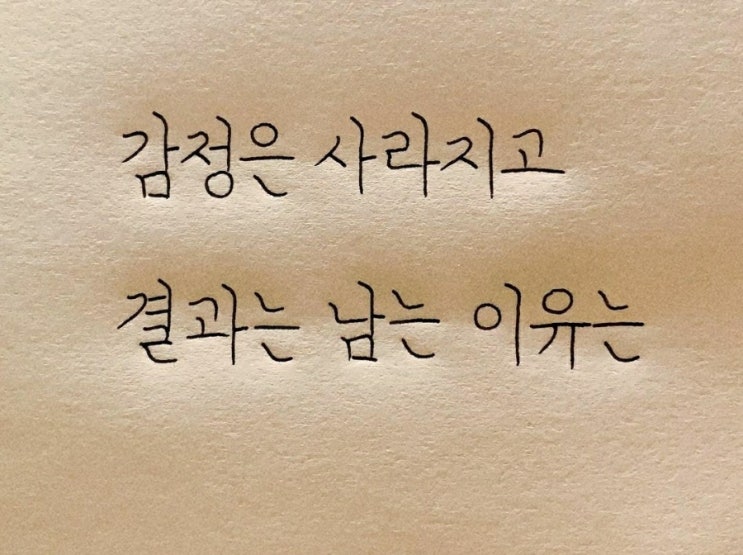 감정은 사라지고
결과는 남는 이유는